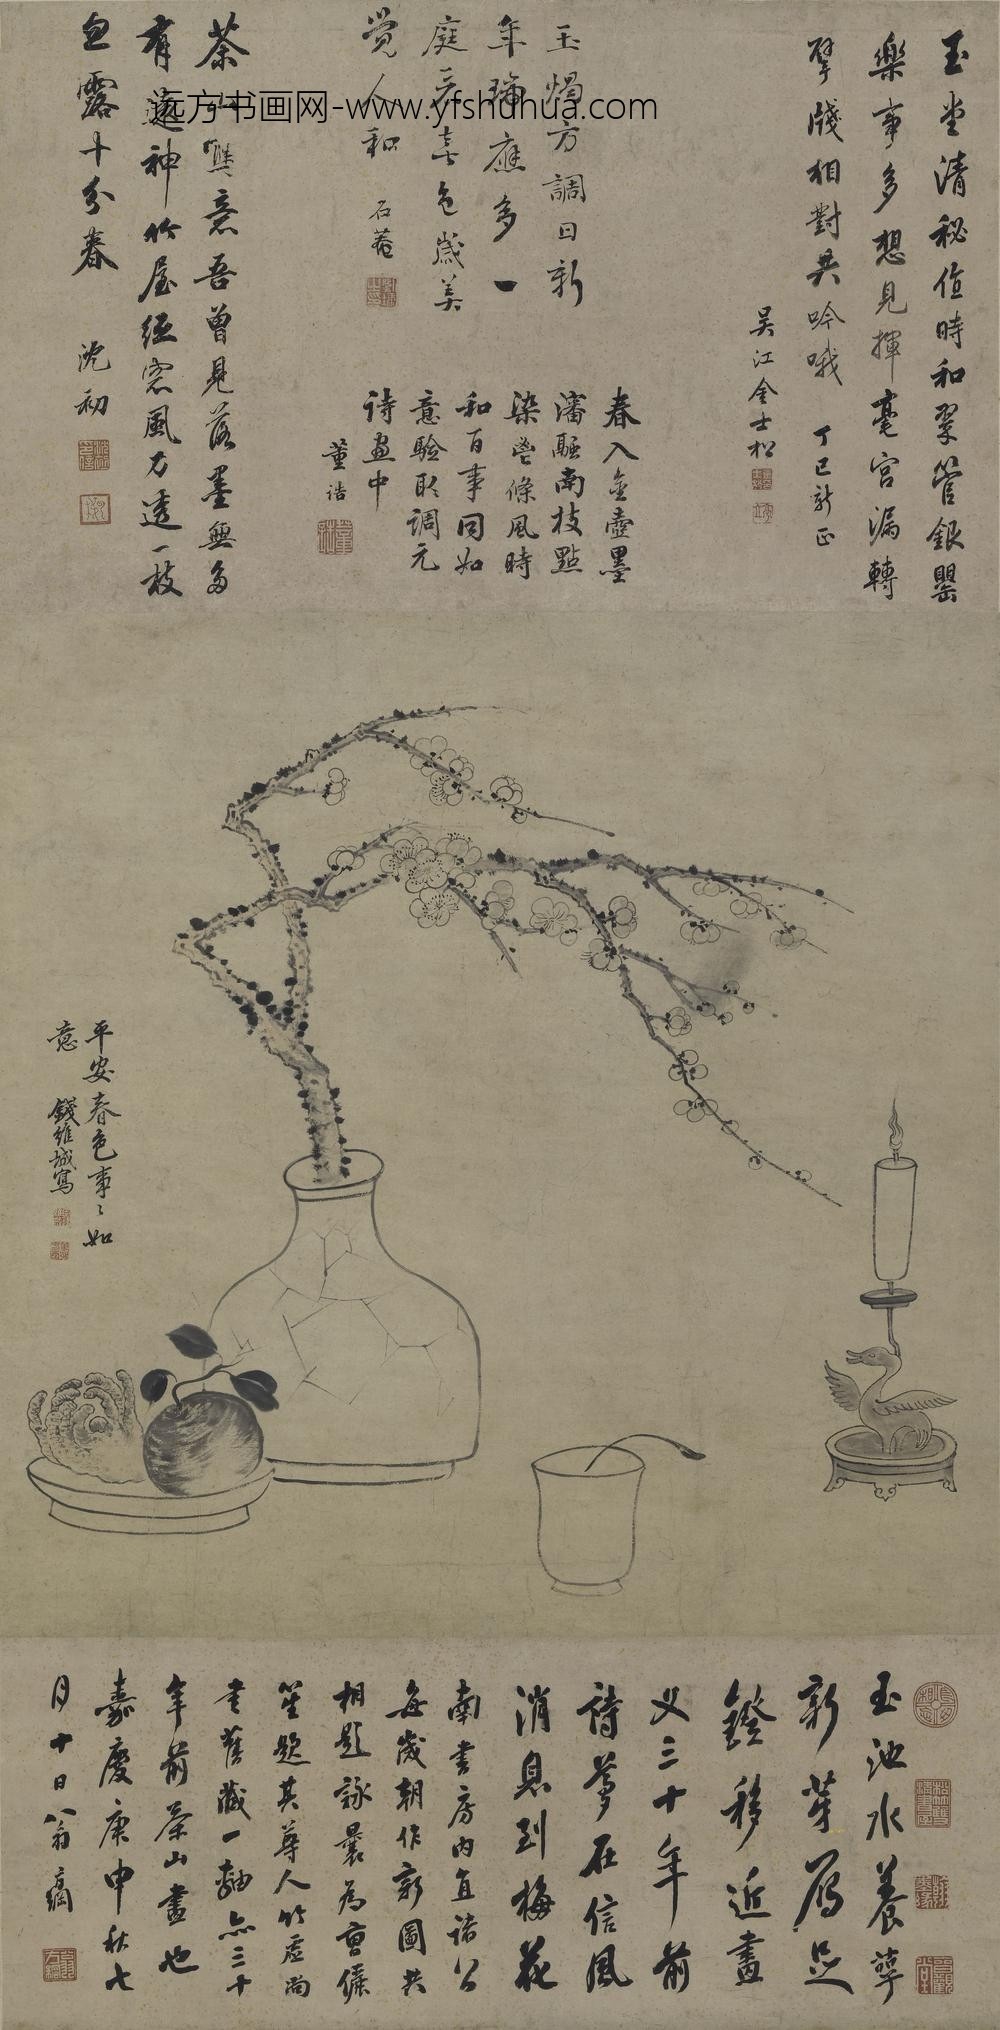 远方书画网-www.yfshuhua.com
玉堂清秘值時和翠管銀罌
樂事多想見揮毫宮漏轉
擘牋相對共吟哦 丁巳新正
吳江金士松
玉燭方調日新
年瑞應多一
庭春喜色歲美
覺人和 石菴
春入金壺墨
瀋融南枝點
染當條風時
和百事同如
意驗取調元
詩畫中
董誥
茶山雅意吾曾見落墨無多
有遠神竹屋紙窗風力透一枝
和露十分春 沈初
平安春色事〻如
意 錢維城寫
玉池水養草
新芽雁足
鐙移近畫
叉三十年前
詩夢在信風
消息到梅花
南書房內直諸公
每歲朝作新圖共
相題詠曩為
笙題其尊人竹虛尚
書舊藏一軸亦三十
年前茶山畫也
嘉慶庚申秋七
月十日方綱